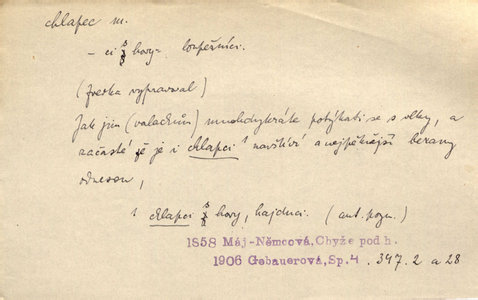 chlapec m.
– ci z hory = loupežníci.
(Jverka vypravoval)
Jak jim (valachům) mnohdykráte potýkati se s vlky, a
začasté je i chlapci 1 navštíví a nejpěknější berany
odnesou,
1 chlapci z hory, hajduci. (aut. pozn.)
1858 Máj-Němcová, Chyže pod h.
1906 Gebauerová, Sp. 4. 347. 2 a 28